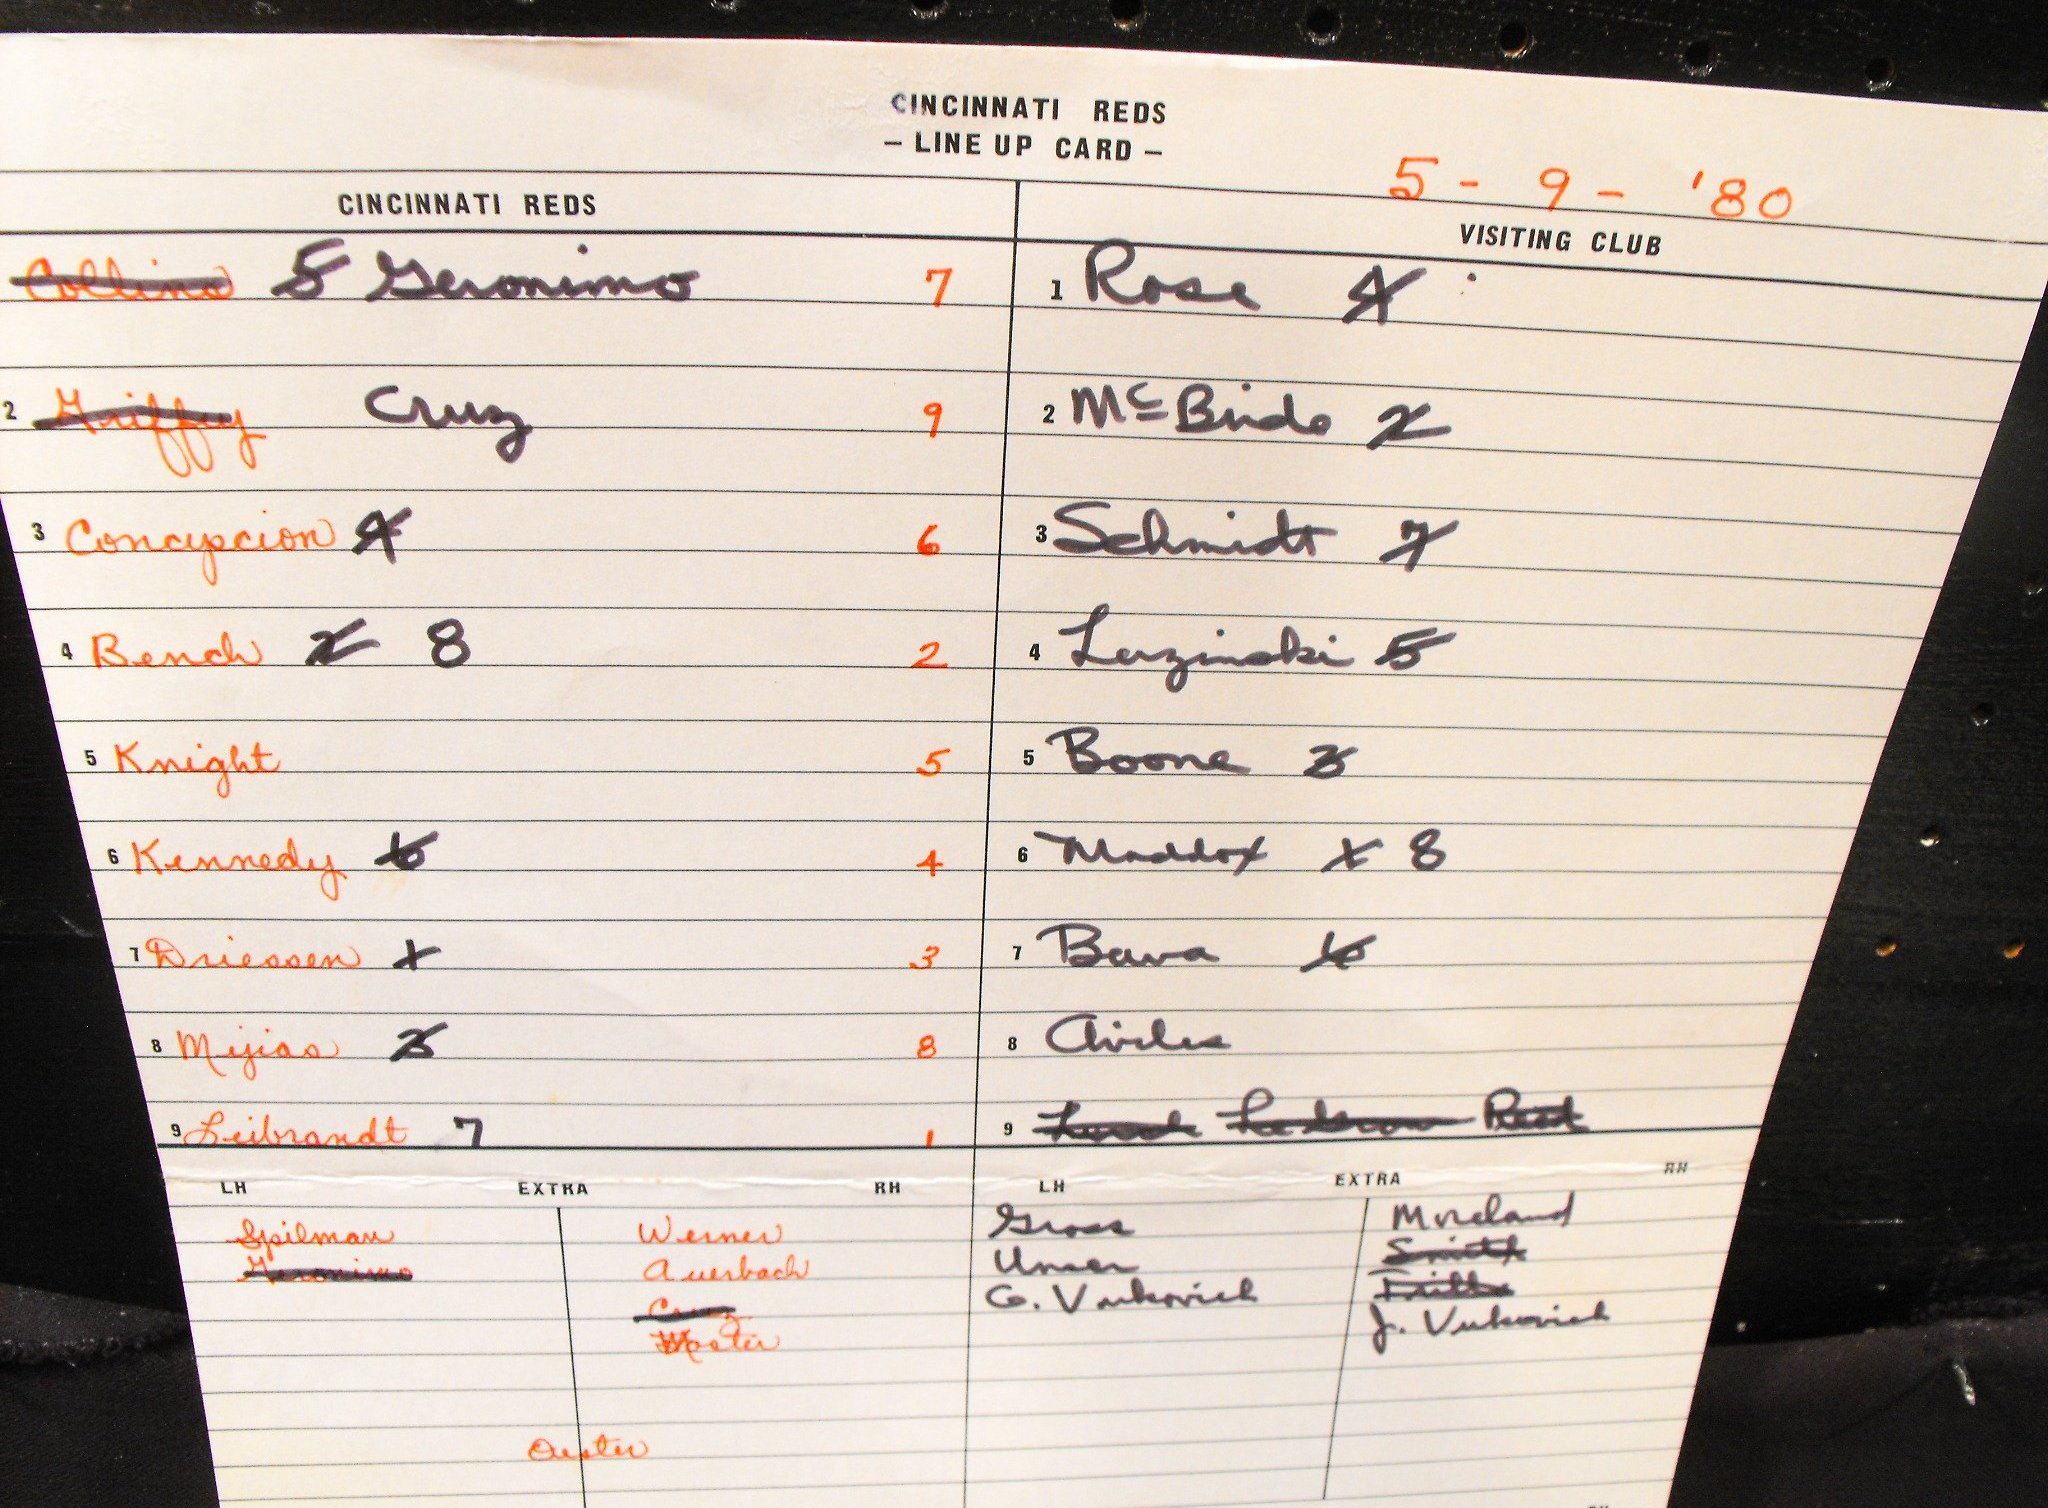 CINCINNATI REDS
— LINE UP CARD —
5 - 9 - '80
CINCINNATI REDS
VISITING CLUB
Collins 5 Geronimo 7
1 Rose 4
2 Griffey Cruz 9
2 McBride 2
3 Concepcion 4 6
3 Schmidt 7
4 Bench 2 8 2
4 Luzinski 5
5 Knight 5
5 Boone 3
6 Kennedy 6 4
6 Maddox 1 8
7 Driessen 1 3
7 Bowa 6
8 Mijias 3 8
8 Aviles
9 Leibrandt 7 1
9 Lerch LaGrow Reed
LH EXTRA RH
LH EXTRA RH
Spilman Werner
Geronimo Auerbach
Cruz
Mester
Gross Moreland
Unser Smith
G. Vukovich
J. Vukovich
Oester
RH